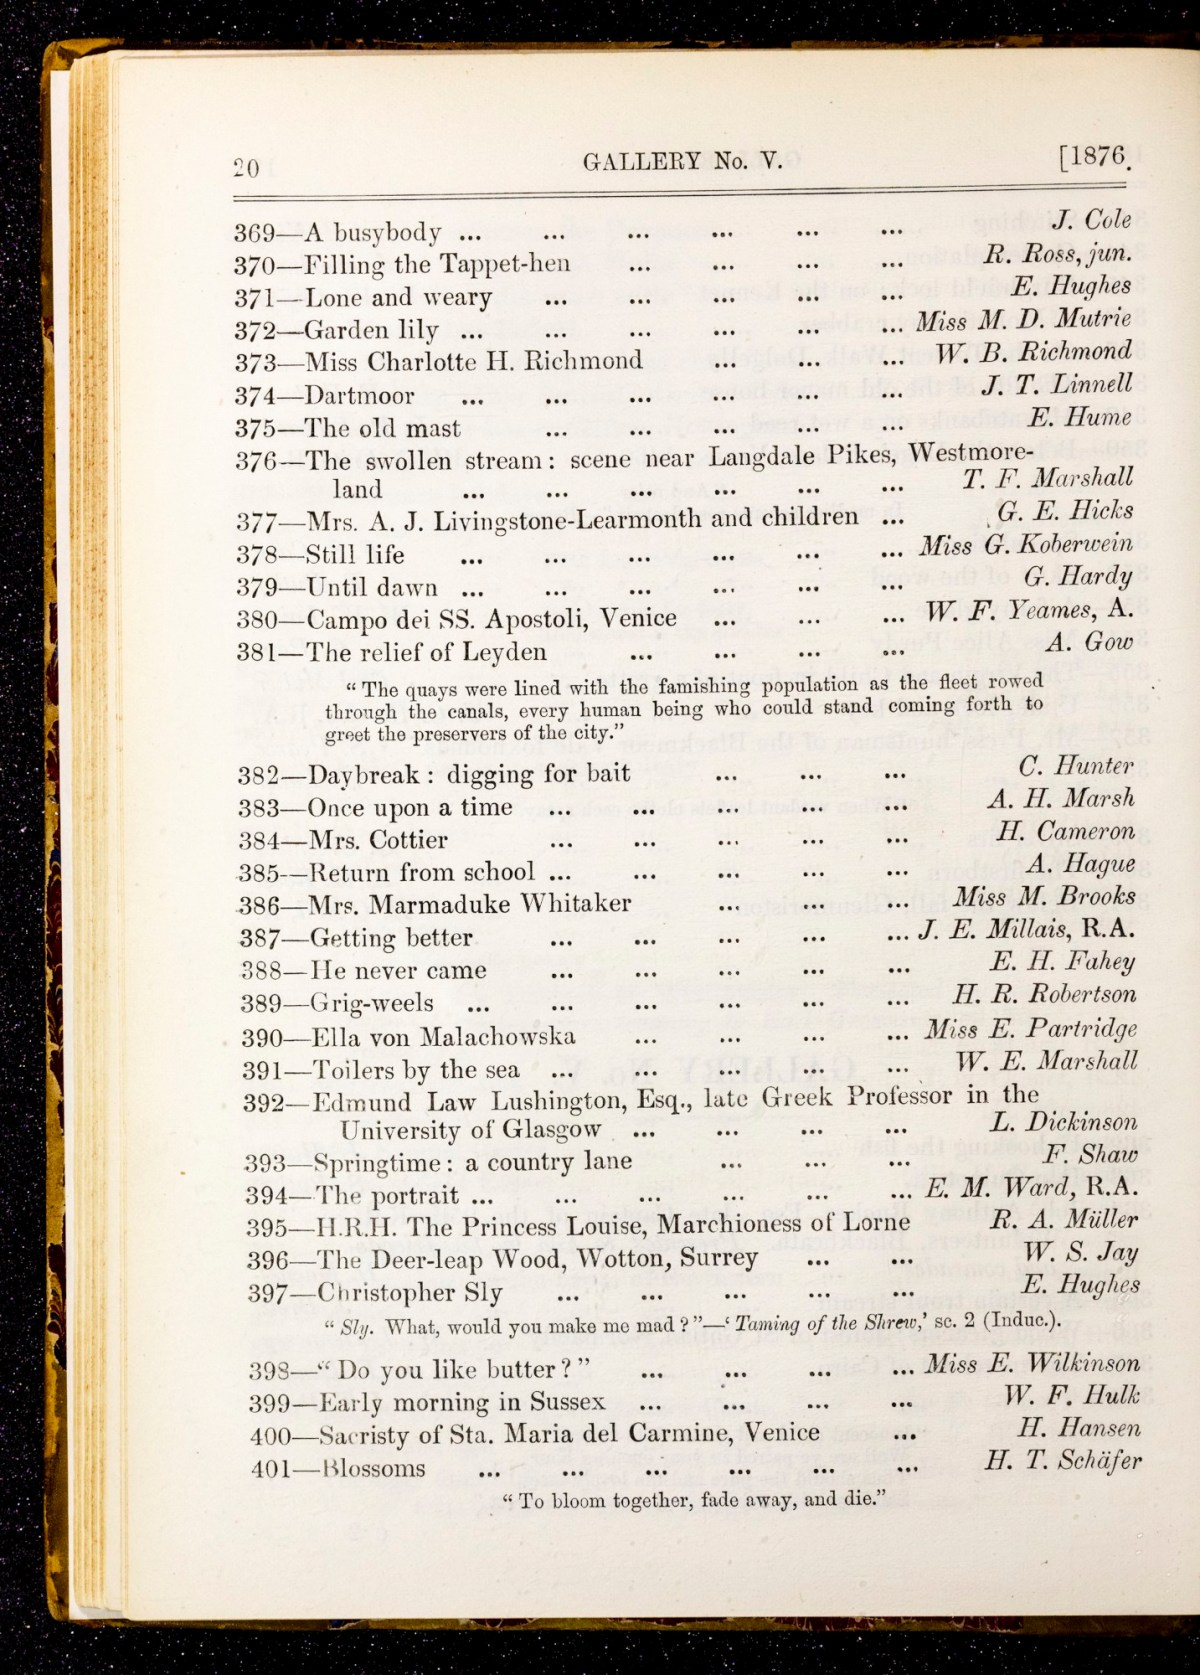 20 GALLERY No. V. [1876.
369—A busybody ... ... ... ... ... ... J. Cole
370—Filling the Tappet-hen ... ... ... ... R. Ross, jun.
371—Lone and weary ... ... ... ... ... E. Hughes
372—Garden lily ... ... ... ... ... ... Miss M. D. Mutrie
373—Miss Charlotte H. Richmond ... ... ... W. B. Richmond
374—Dartmoor ... ... ... ... ... ... J. T. Linnell
375—The old mast ... ... ... ... ... E. Hume
376—The swollen stream: scene near Langdale Pikes, Westmore-
land ... ... ... ... ... ... T. F. Marshall
377—Mrs. A. J. Livingstone-Learmonth and children ... G. E. Hicks
378—Still life ... ... ... ... ... ... Miss G. Koberwein
379—Until dawn ... ... ... ... ... ... G. Hardy
380—Campo dei SS. Apostoli, Venice ... ... ... W. F. Yeames, A.
381—The relief of Leyden ... ... ... ... A. Gow
“The quays were lined with the famishing population as the fleet rowed
through the canals, every human being who could stand coming forth to
greet the preservers of the city.”
382—Daybreak: digging for bait ... ... ... C. Hunter
383—Once upon a time ... ... ... ... ... A. H. Marsh
384—Mrs. Cottier ... ... ... ... ... H. Cameron
385—Return from school ... ... ... ... ... A. Hague
386—Mrs. Marmaduke Whitaker ... ... ... Miss M. Brooks
387—Getting better ... ... ... ... ... J. E. Millais, R.A.
388—He never came ... ... ... ... ... E. H. Fahey
389—Grig-weels ... ... ... ... ... ... H. R. Robertson
390—Ella von Malachowska ... ... ... ... Miss E. Partridge
391—Toilers by the sea ... ... ... ... ... W. E. Marshall
392—Edmund Law Lushington, Esq., late Greek Professor in the
University of Glasgow ... ... ... ... L. Dickinson
393—Springtime: a country lane ... ... ... F. Shaw
394—The portrait ... ... ... ... ... ... E. M. Ward, R.A.
395—H.R.H. The Princess Louise, Marchioness of Lorne R. A. Müller
396—The Deer-leap Wood, Wotton, Surrey ... ... W. S. Jay
397—Christopher Sly ... ... ... ... ... E. Hughes
“Sly. What, would you make me mad?”—‘Taming of the Shrew,’ sc. 2 (Induc.).
398—“Do you like butter?” ... ... ... ... Miss E. Wilkinson
399—Early morning in Sussex ... ... ... ... W. F. Hulk
400—Sacristy of Sta. Maria del Carmine, Venice ... H. Hansen
401—Blossoms ... ... ... ... ... ... H. T. Schäfer
“To bloom together, fade away, and die.”